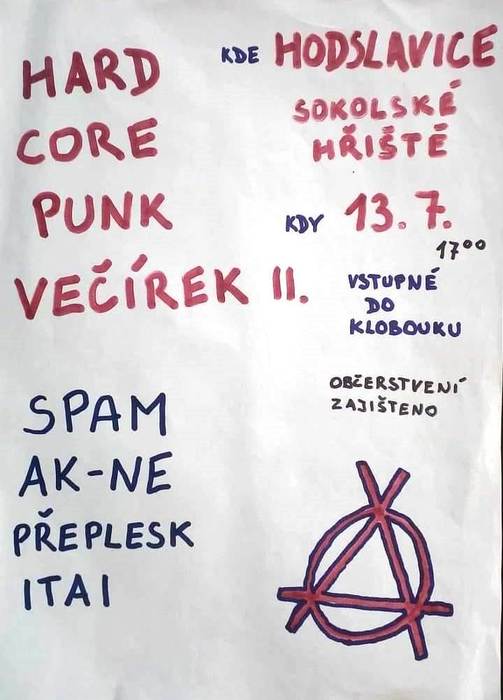 HARD
CORE
PUNK
VEČÍREK II.
KDE HODSLAVICE
SOKOLSKÉ
HŘIŠTĚ
KDY 13.7.
17⁰⁰
VSTUPNÉ
DO
KLOBOUKU
OBČERSTVENÍ
ZAJIŠTENO
SPAM
AK-NE
PŘEPLESK
ITAI